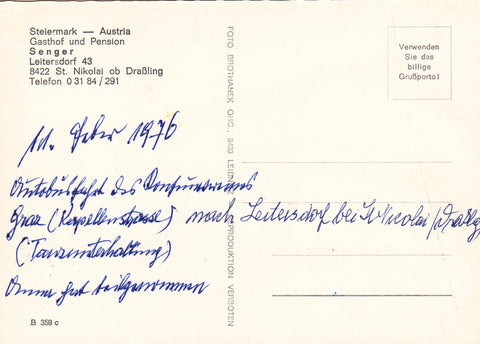 Steiermark — Austria
Gasthof und Pension
Senger
Leitersdorf 43
8422 St. Nikolai ob Draßling
Telefon 0 31 84 / 291
Verwenden
Sie das
billige
Grußporto!
FOTO BROTHANEK OHG., 8430 LEIBNITZ REPRODUKTION VERBOTEN
11. Feber 1976
Autobusfahrt des Konsumvereins
Graz (Kapellenstrasse) nach Leitersdorf bei St. Nicolai / Draßlg
(Tanzunterhaltung)
Anna hat teilgenommen
B 359 c